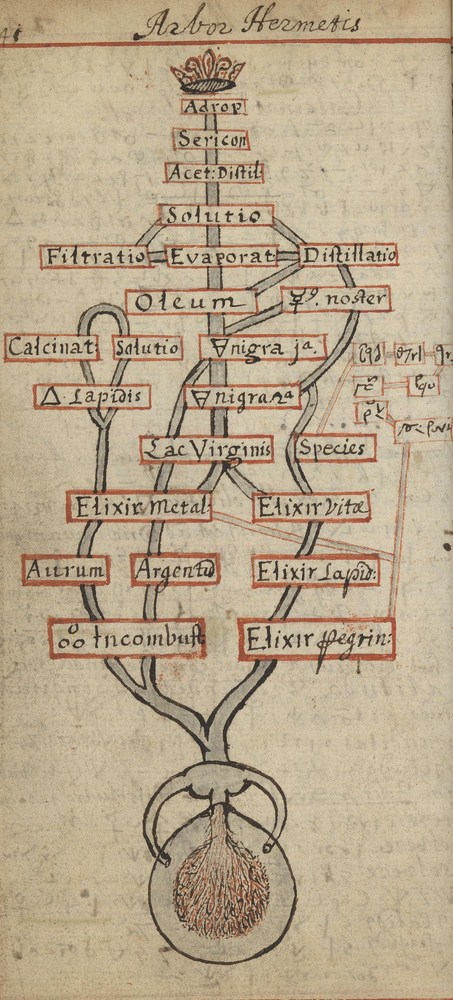 Arbor Hermetis
Adrop
Sericon
Acet: Distil:
Solutio
Filtratio Evaporat: Distillatio
Oleum ☿º. noster
Calcinat: Solutio 🜃nigra jª.
🜂. Lapidis 🜃nigra 2ª
Lac Virginis Species
Elixir Metal: Elixir vitæ
Aurum Argentū Elixir Lapid:
Incombust: Elixir